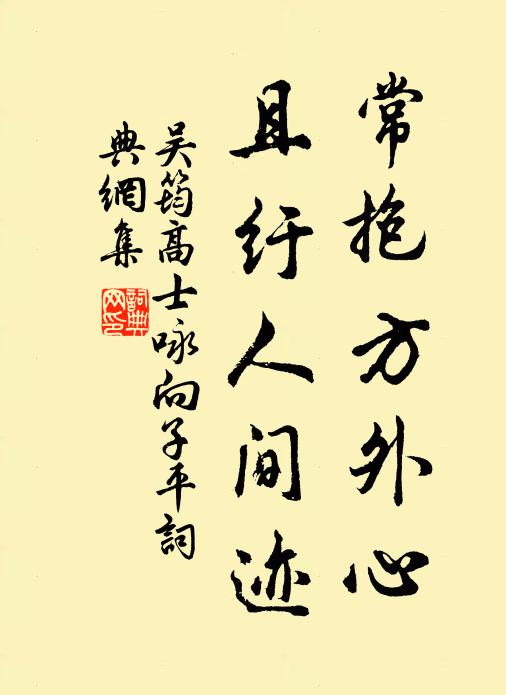 常抱方外心
且纡人间迹
吴筠高士咏向子平詞
典網集
詞典网印